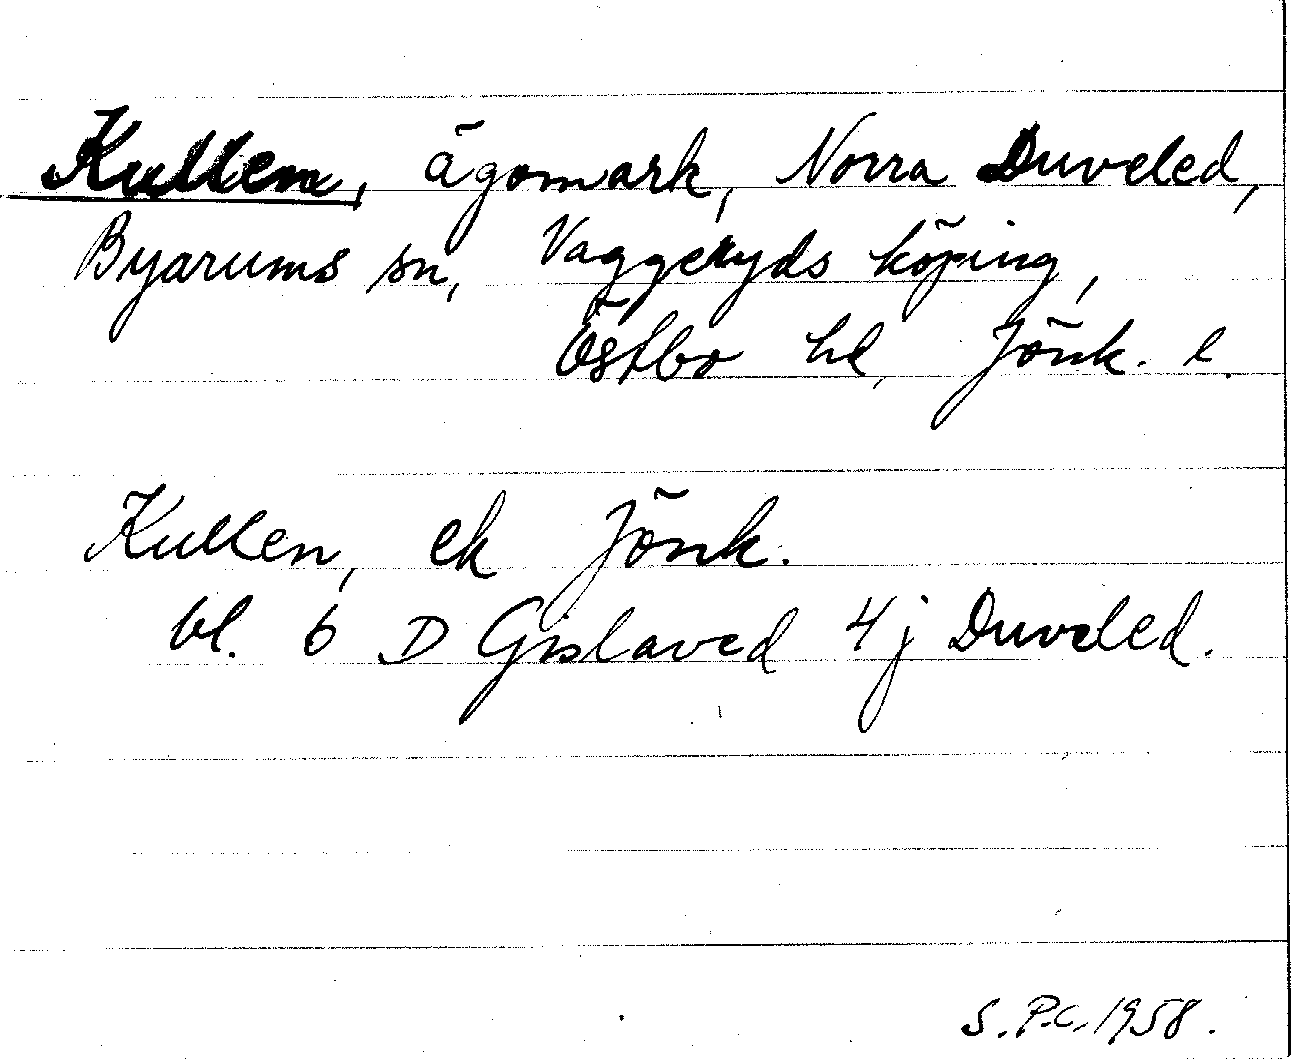 Kullen, ägomark, Norra Duveled,
Byarums sn, Vaggeryds köping,
Östbo hd, Jönk. l.
Kullen, ek Jönk.
bl. 6 D Gislaved 4j Duveled.
S.P.C. 1958.